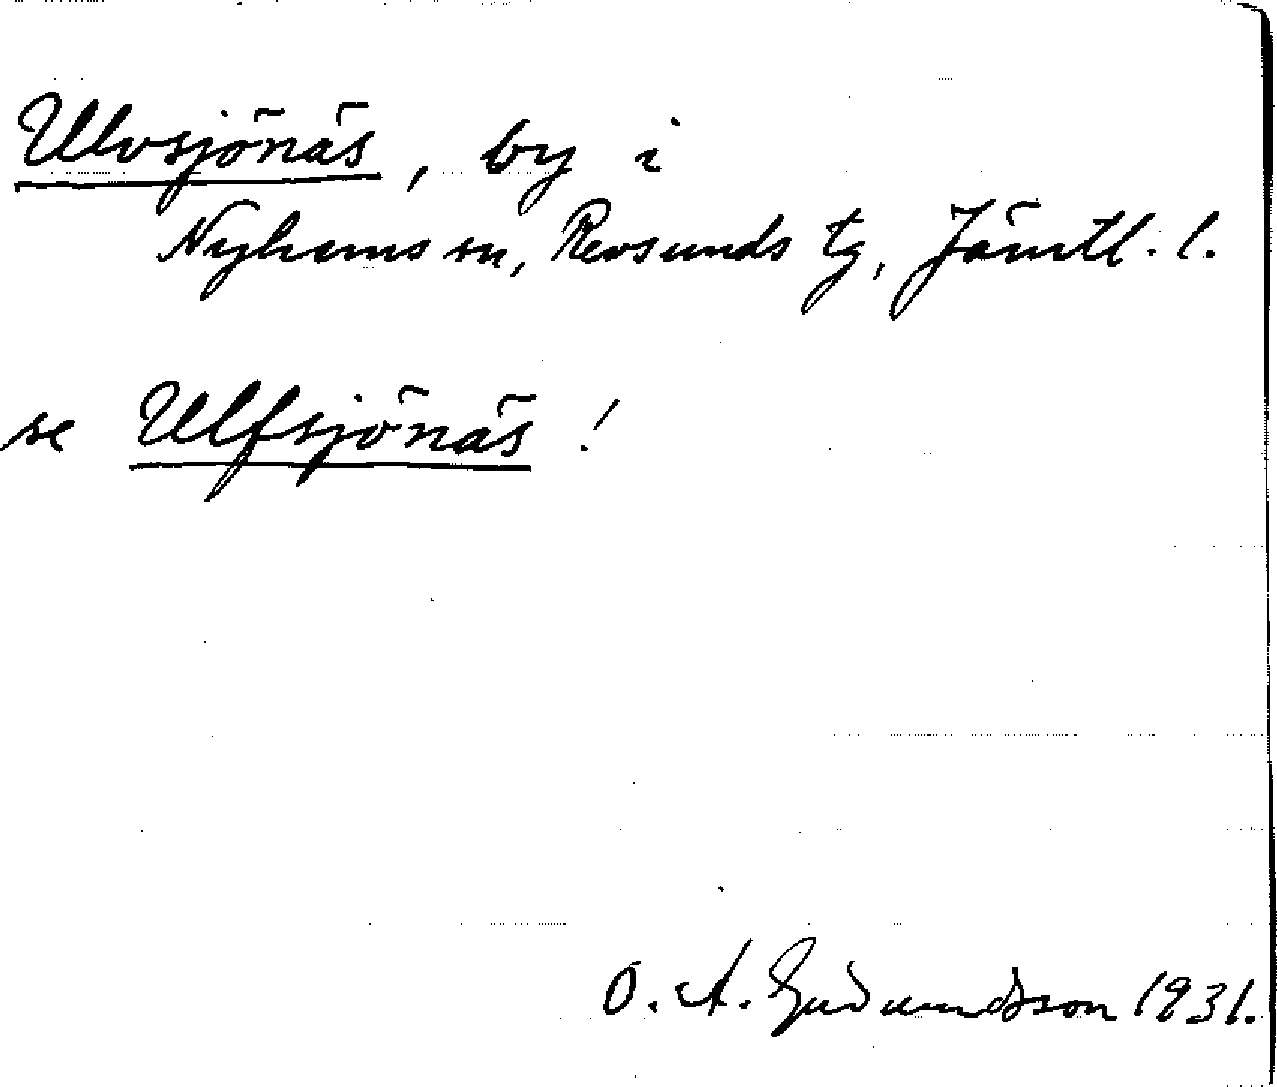 Ulvsjönäs, by i
Nyhems sn, Revsunds tg, Jämtl. l.
se Ulfsjönäs!
O. A. Gudmundsson 1931.